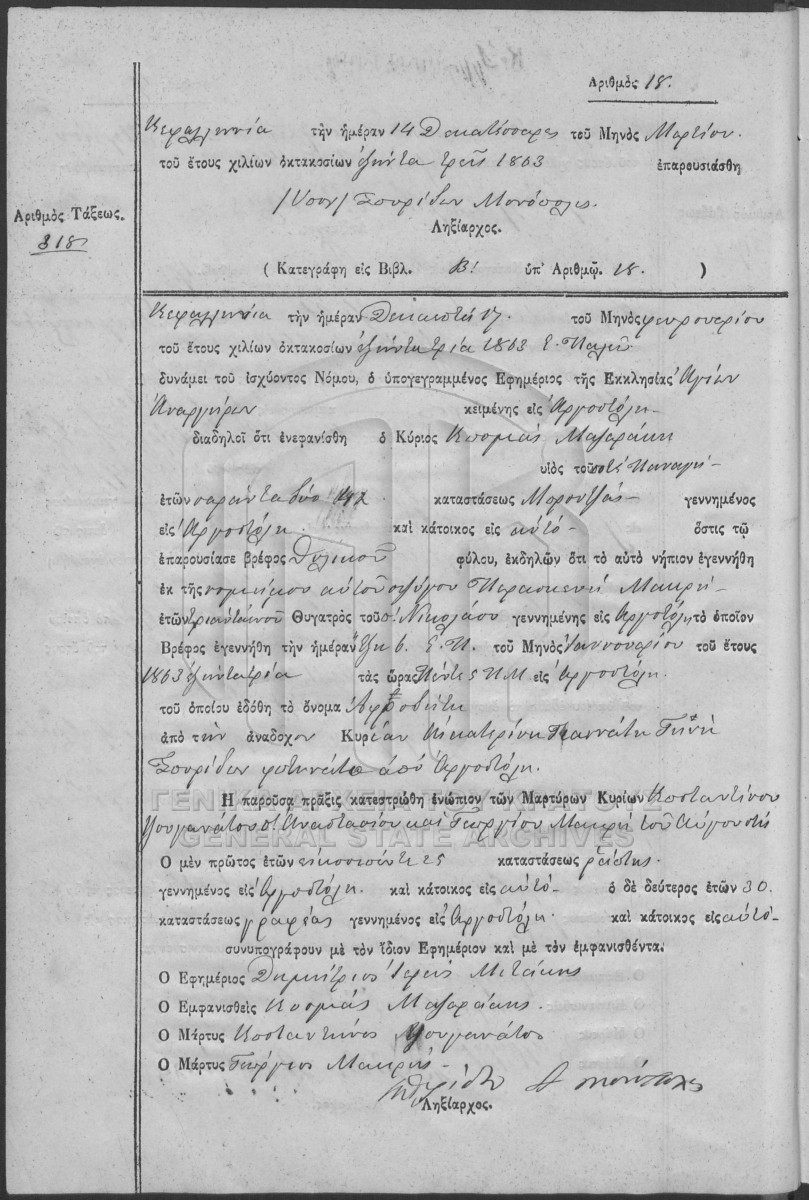 Ἀριθμὸς 18.
Κεφαλληνία τὴν ἡμέραν 14 Δεκατέσσαρες τοῦ Μηνὸς Μαρτίου.
τοῦ ἔτους χιλίων ὀκτακοσίων ἑξήντα τρεῖς 1863 ἐπαρουσιάσθη
Σπυρίδων Μονόπολις.
Ληξίαρχος.
Ἀριθμὸς Τάξεως.
318
( Κατεγράφη εἰς Βιβλ. Β! ὑπ' Ἀριθμῷ. 18. )
Κεφαλληνία τὴν ἡμέραν 17. τοῦ Μηνὸς φευρουαρίου
τοῦ ἔτους χιλίων ὀκτακοσίων ἑξήντα τρία 1863 Ε. Παλ.
δυνάμει τοῦ ἰσχύοντος Νόμου, ὁ ὑπογεγραμμένος Ἐφημέριος τῆς Ἐκκλησίας Ἁγίων
Ἀναργύρων κειμένης εἰς Ἀργοστόλι
διαδηλοῖ ὅτι ἐνεφανίσθη ὁ Κύριος Κοσμάς Μαζαράκη
υἱὸς τοῦ ποτὲ Παναγῆ
ἐτῶν σαράντα δύο 42 καταστάσεως γεννημένος
εἰς Ἀργοστόλι καὶ κάτοικος εἰς αὐτό ὅστις τῷ
ἐπαρουσίασε βρέφος θηλικοῦ φύλου, ἐκδηλῶν ὅτι τὸ αὐτὸ νήπιον ἐγεννήθη
ἐκ τῆς νομίμου αὐτοῦ συζύγου Παρασκευή Μακρή
ἐτῶν Θυγατρὸς τοῦ π. Νικολάου γεννημένης εἰς Ἀργοστόλι τὸ ὁποῖον
Βρέφος ἐγεννήθη τὴν ἡμέραν Ἕξη 6. Ε. Π. τοῦ Μηνὸς Ἰαννουαρίου τοῦ ἔτους
1863 ἑξήντα τρία τὰς ὥρας Πέντε 5 Π.Μ. εἰς Ἀργοστόλι.
τοῦ ὁποίου ἐδόθη τὸ ὄνομα Ἀφροδίτη
ἀπὸ τὴν ἀνάδοχον Κυρίαν Αἰκατερίνη Γιαννάτη
Σπυρίδων ἀπό Ἀργοστόλι.
Ἡ παροῦσα πρᾶξις κατεστρώθη ἐνώπιον τῶν Μαρτύρων Κυρίων Κοσταντίνου
π. Ἀναστασίου καὶ Γεργίου Μακρῆ τοῦ Αὐγουστῆ
ΓΕΝΙΚΑ ΑΡΧΕΙΑ ΤΟΥ ΚΡΑΤΟΥΣ
GENERAL STATE ARCHIVES
Ὁ μὲν πρῶτος ἐτῶν εἰκοσιπέντε 25 καταστάσεως ῥάπτης.
γεννημένος εἰς Ἀργοστόλι. καὶ κάτοικος εἰς αὐτό ὁ δὲ δεύτερος ἐτῶν 30.
καταστάσεως γραφέας γεννημένος εἰς Ἀργοστόλι. καὶ κάτοικος εἰς αὐτό
συνυπογράφουν μὲ τὸν ἴδιον Ἐφημέριον καὶ μὲ τὸν ἐμφανισθέντα.
Ὁ Ἐφημέριος Δημήτριος Ἱερεύς
Ὁ Ἐμφανισθεὶς Κοσμάς Μαζαράκης.
Ὁ Μάρτυς Κοσταντῖνος
Ὁ Μάρτυς Γεώργιος Μακρής
Ληξίαρχος.